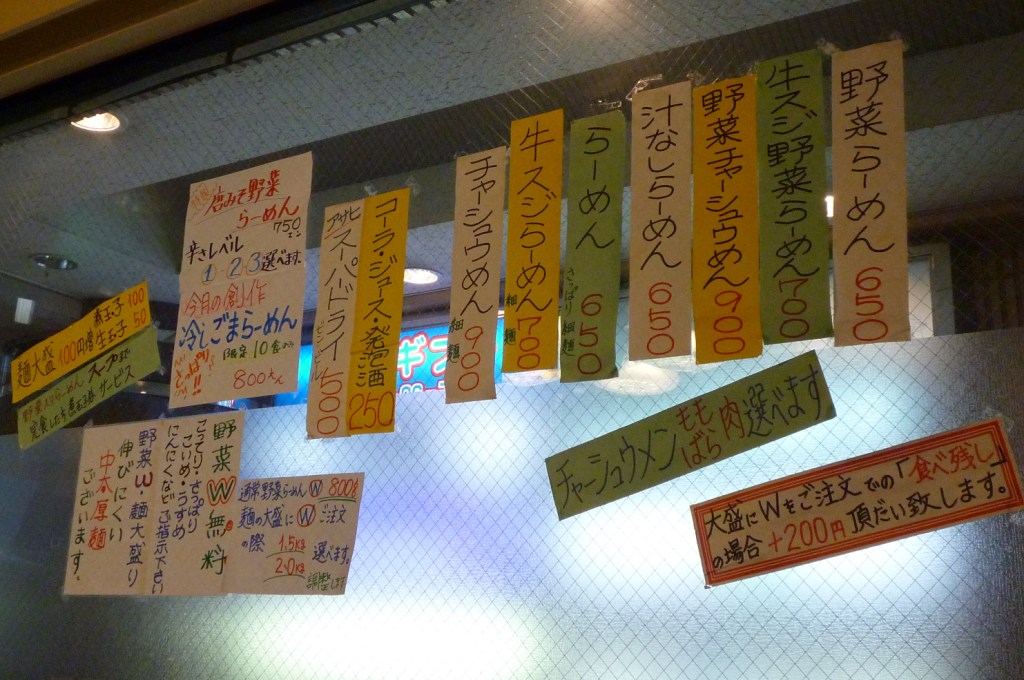 野菜らーめん 650
牛スジ野菜らーめん 700
野菜チャーシュウめん 900
汁なしらーめん 650
らーめん 650
さっぱり細麺
牛スジらーめん 700
細麺
チャーシュウめん 900
細麺
コーラ・ジュース・発泡酒 250
アサヒ
スーパドライ 500
みそ野菜
らーめん
750
辛さレベル
1・2・3選べます。
今月の創作
冷しごまらーめん
限定10食
800
煮玉子100
麺大盛100円増生玉子50
サービス
チャーシュウメン もも ばら 肉選べます
大盛にWをご注文での「食べ残し」
の場合+200円頂だい致します。
野菜W無料
こってり・さっぱり
こいめ・うすめ
にんにくなどご指示下さい
野菜W・麺大盛り
伸びにくい
中太厚麺
ございます。
通常野菜らーめんW 800g
麺の大盛にWご注文
の際
1.5Kg
2.0Kg
選べます。